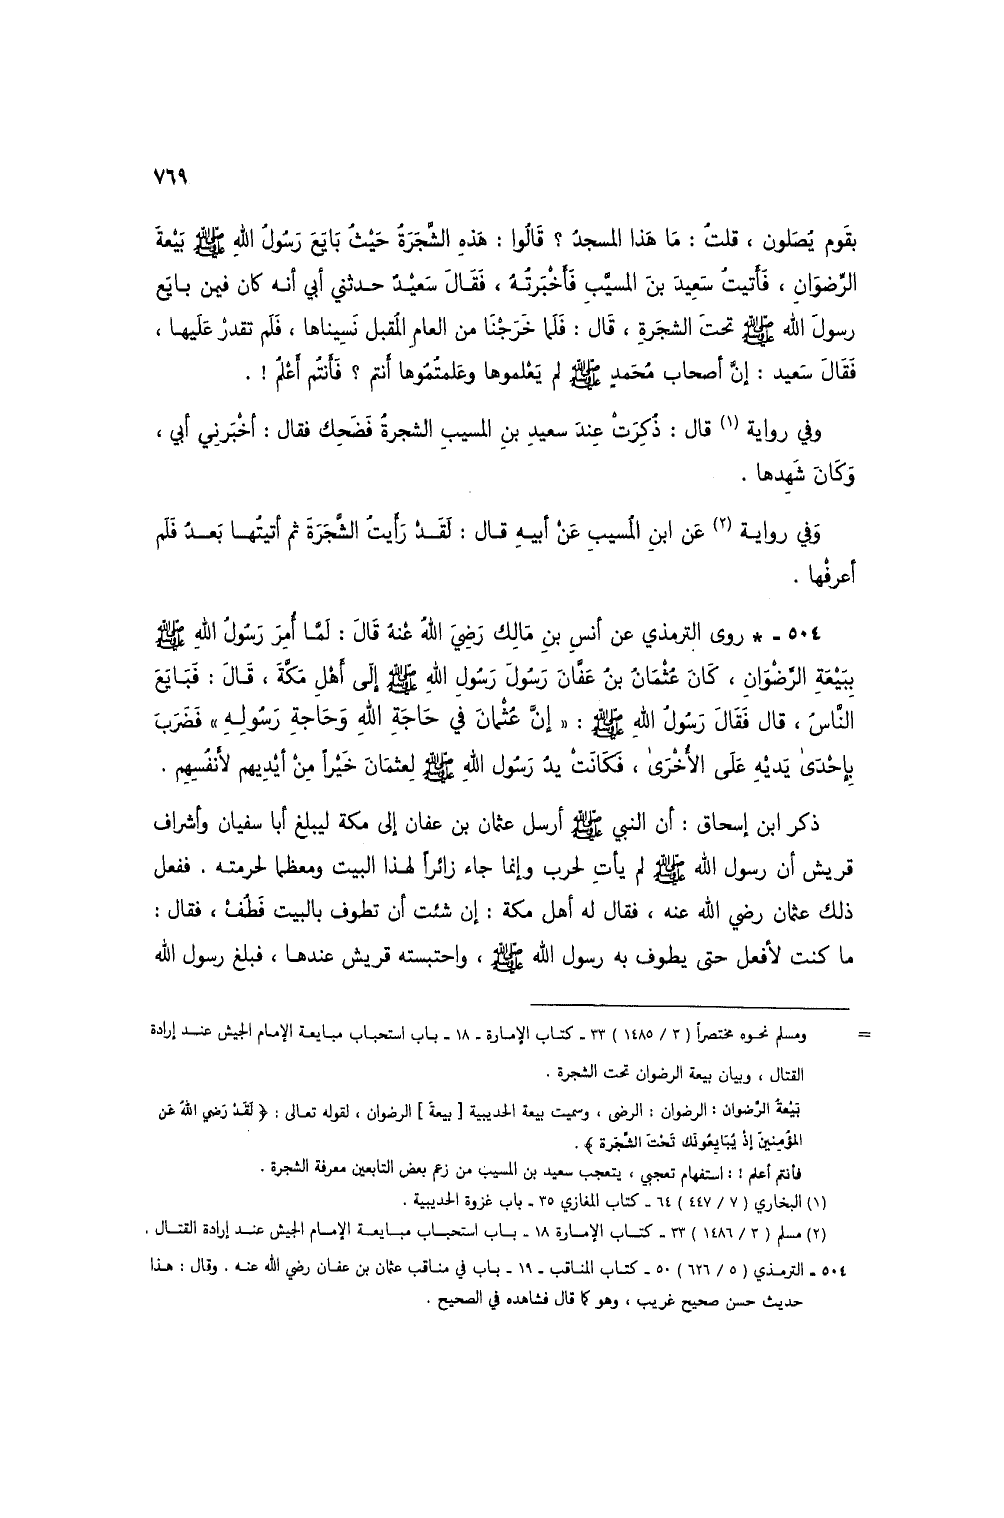 ٧٦٩
بقَوم يُصَلون ، قلتُ : مَا هَذا المسجدُ ؟ قَالُوا : هَذهِ الشَّجَرَةُ حَيْثُ بَايَعَ رَسُولُ اللهِ ﷺ بَيْعةَ
الرِّضوَانِ ، فَأَتيتُ سَعِيدَ بنَ المسيَّبِ فَأَخْبَرتُهُ ، فَقَالَ سَعيْدٌ حدثني أبي أنه كان فيمن بايَع
رسولَ الله ﷺ تحتَ الشجَرةِ ، قَال : فَلَما خَرَجْنَا من العام المُقبل نَسِيناها ، فَلَم تقدرْ عَلَيها ،
فَقَالَ سَعيد : إنَّ أصحاب مُحَمدٍ ﷺ لم يَعْلموها وعَلمتُمُوها أنتم ؟ فَأَنتُم أَعْلمُ ! .
وفي رواية (١) قال : ذُكِرَتْ عِندَ سعيدِ بنِ المسيبِ الشجرةُ فَضَحِك فقال : أخْبَرنِي أبي ،
وَكَانَ شَهِدها .
وَفي رواية (٢) عَن ابنِ المُسيبِ عَنْ أبيهِ قال : لَقَدْ رَأَيتُ الشَّجَرَةَ ثم أتيتُها بَعدُ فَلَم
أعرفْها .
٥٠٤ - * روى الترمذي عن أنسِ بنِ مَالِكٍ رَضِيَ اللهُ عْنهُ قَالَ : لَمَّا أُمِرَ رَسُولُ اللهِ ﷺ
بِبَيْعَةِ الرِّضْوَانِ ، كَانَ عُثْمَانُ بنُ عَفَّانَ رَسُولَ رَسُولِ اللهِ ﷺ إلَى أَهْلِ مَكَّةَ ، قَالَ : فَبَايَعَ
النَّاسُ ، قال فَقَالَ رَسُولُ اللهِ ﷺ : « إنَّ عُثْمانَ فِي حَاجَةِ اللهِ وَحَاجةِ رَسُولِهِ » فَضَرَبَ
بِإحْدَىٰ يَديْهِ عَلَى الأُخْرَىٰ ، فَكَانَتْ يدُ رَسُول اللهِ ﷺ لِعثمَانَ خَيْراً مِنْ أيْدِيهِم لأَنفُسِهِم .
ذكر ابن إسحاق : أن النبي ﷺ أرسل عثمان بن عفان إلى مكة ليبلغ أبا سفيان وأشراف
قريش أن رسول الله ﷺ لم يأتِ لحرب وإنما جاء زائراً لهذا البيت ومعظما لحرمته . ففعل
ذلك عثمان رضي الله عنه ، فقال له أهل مكة : إن شئت أن تطوف بالبيت فَطُفْ ، فقال :
ما كنت لأفعل حتى يطوف به رسول الله ﷺ ، واحتبسته قريش عندها ، فبلغ رسول الله
= ومسلم نحوه مختصراً ( ٣ / ١٤٨٥ ) ٣٣ - كتاب الإمارة - ١٨ - باب استحباب مبايعة الإمام الجيش عند إرادة
القتال ، وبيان بيعة الرضوان تحت الشجرة .
بَيْعَةُ الرِّضوان : الرضوان : الرضى ، وسميت بيعة الحديبية [ بيعةَ ] الرضوان ، لقوله تعالى : ﴿ لَقَدْ رَضي اللهُ عَن
المؤْمِنينَ إذْ يُبَايعُونَك تَحْتَ الشَّجَرة ﴾ .
فأنتم أعلم ! : استفهام تعجبي ، يتعجب سعيد بن المسيب من زعم بعض التابعين معرفة الشجرة .
(١) البخاري ( ٧ / ٤٤٧ ) ٦٤ - كتاب المغازي ٣٥ - باب غزوة الحديبية .
(٢) مسلم ( ٣ / ١٤٨٦ ) ٣٣ - كتاب الإمارة ١٨ - باب استحباب مبايعة الإمام الجيش عند إرادة القتال .
٥٠٤ - الترمذي ( ٥ / ٦٢٦ ) ٥٠ - كتاب المناقب - ١٩ - باب في مناقب عثمان بن عفان رضي الله عنه . وقال : هذا
حديث حسن صحيح غريب ، وهو كما قال فشاهده في الصحيح .